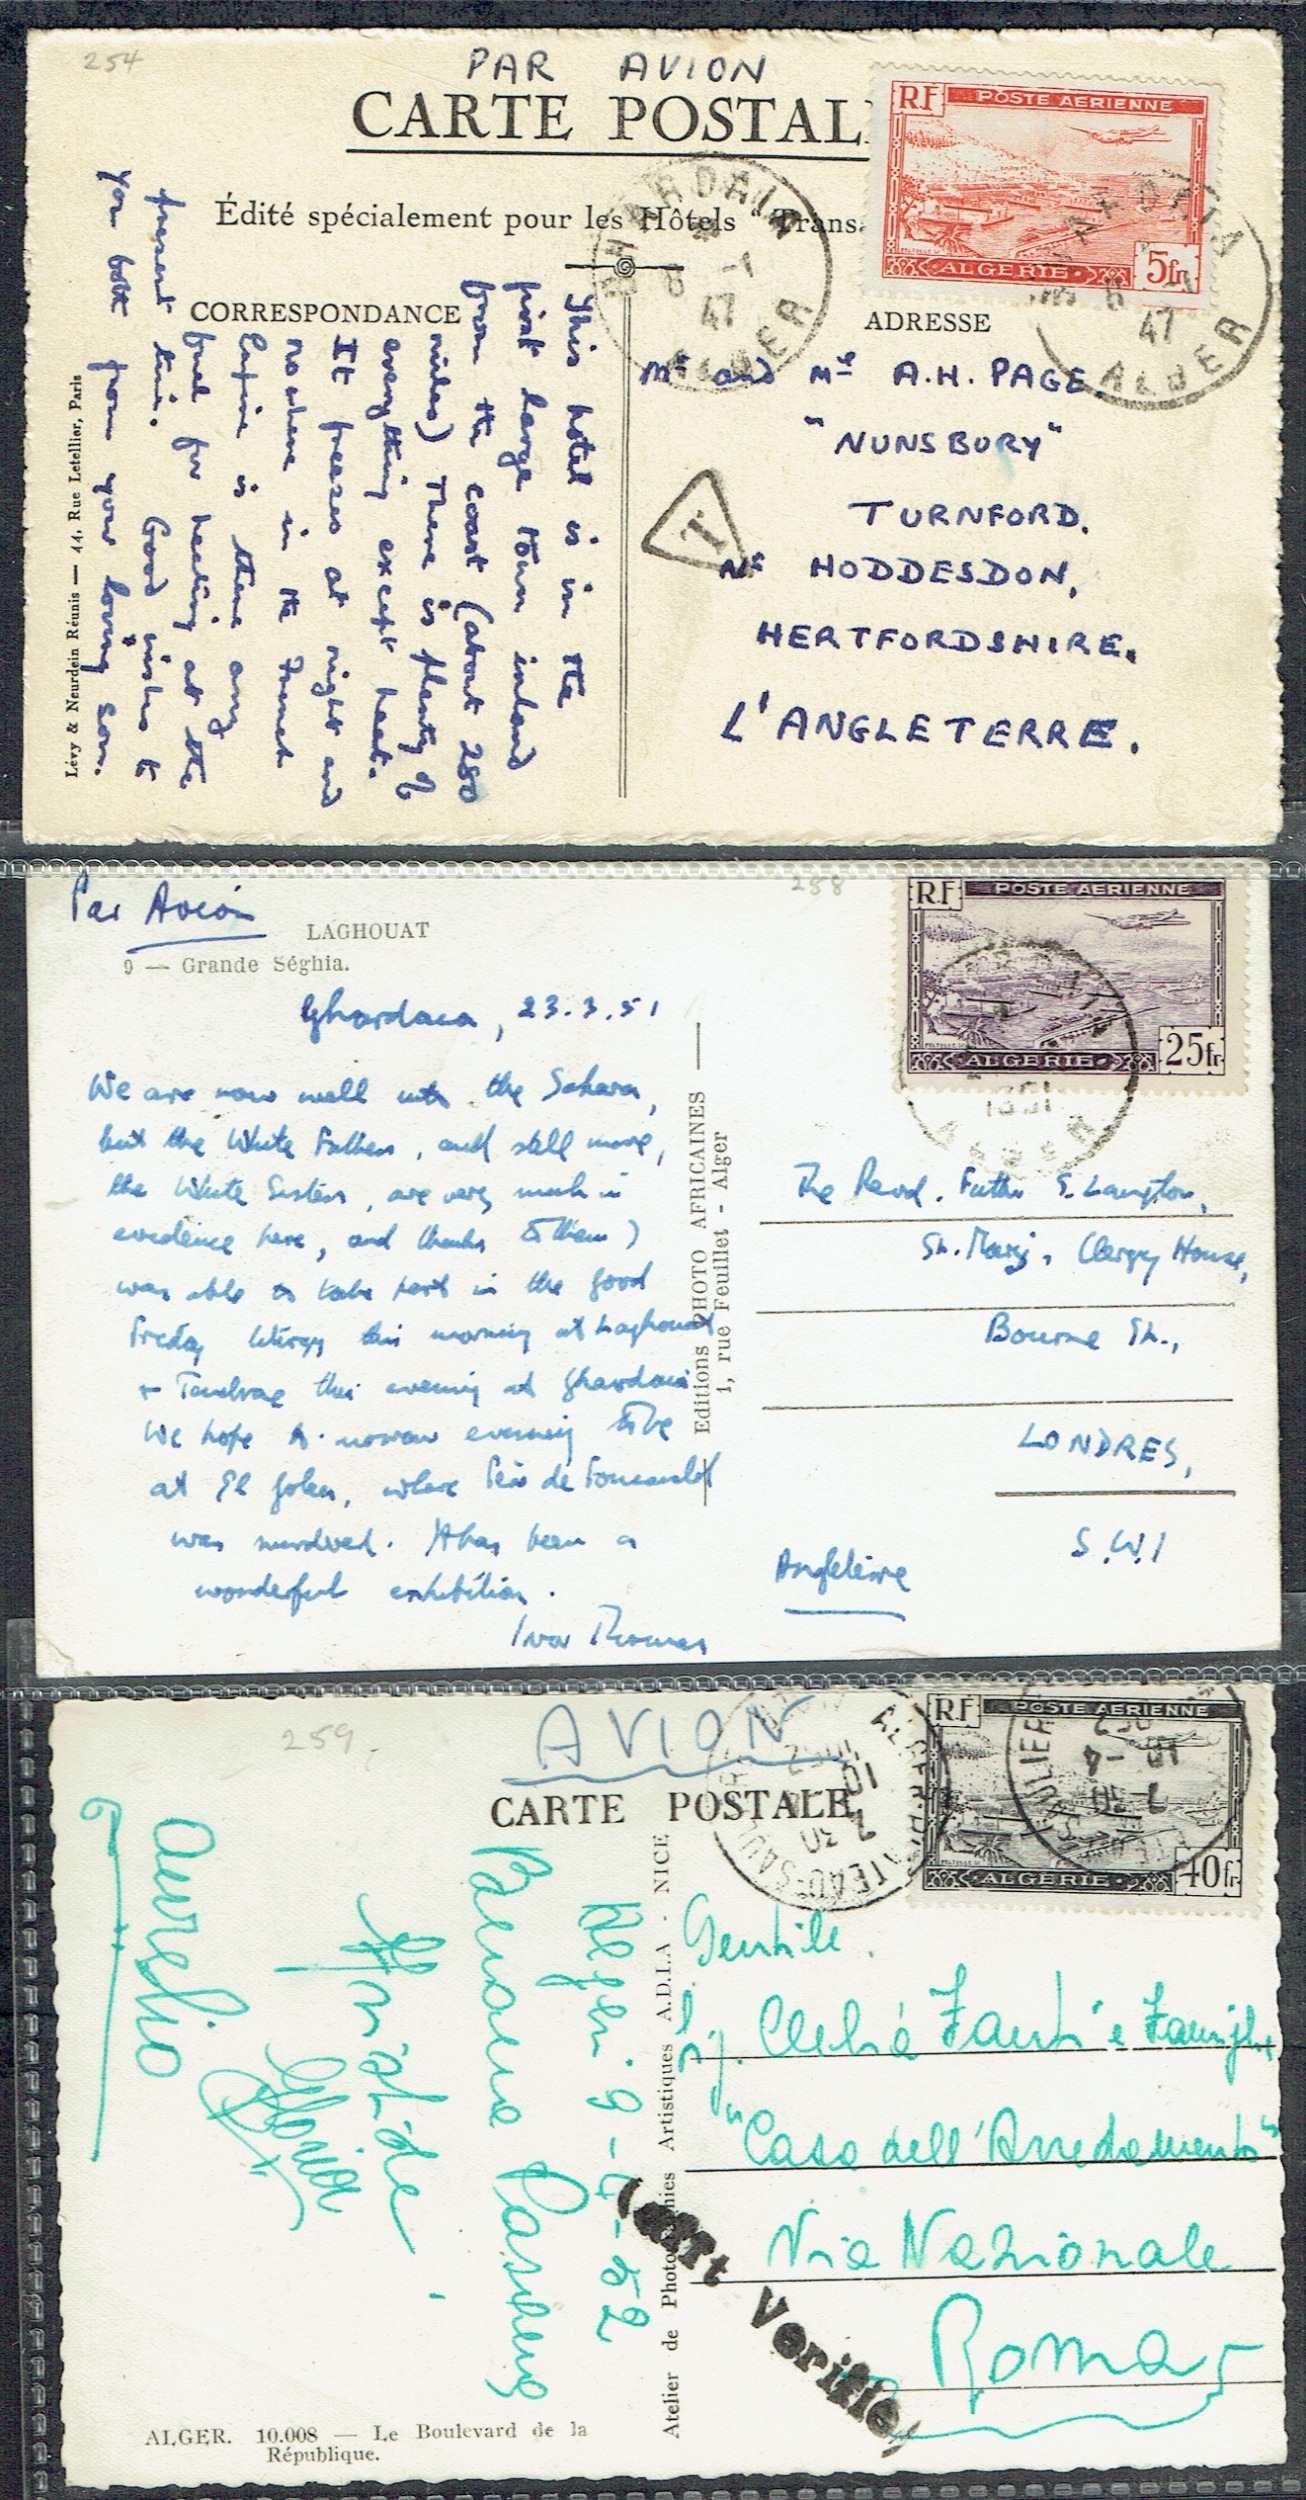 254
PAR AVION
CARTE POSTAL
Édité spécialement pour les Hôtels "Transa
RF POSTE AERIENNE
ALGERIE 5fr
GHARDAIA
8 -1
47
ALGER
GHARDAIA
8 -1
47
ALGER
CORRESPONDANCE
ADRESSE
This hotel is in the
first large town inland
from the coast (about 280
miles) There is plenty of
everything except heat.
It freezes at night and
nowhere in the French
Empire is there any
fuel for heating at the
present time. Good wishes to
you both from your loving son.
Lévy & Neurdein Réunis — 44, Rue Letellier, Paris
Mr and Mrs A.H. PAGE
"NUNSBURY"
TURNFORD.
T
Nr HODDESDON,
HERTFORDSHIRE.
L'ANGLETERRE.
258
Par Avion
LAGHOUAT
9 — Grande Séghia.
RF POSTE AERIENNE
ALGERIE 25fr
1951
ALGER
Ghardaia, 23.3.51
We are now well into the Sahara,
but the White Fathers, and still more,
the White Sisters, are very much in
evidence here, and thanks to them I
was able to take part in the Good
Friday liturgy this morning at Laghouat
+ Tenebrae this evening at Ghardaia
We hope to-morrow evening to be
at El Golea, where Père de Foucauld
was murdered. It has been a
wonderful exhibition.
Ivor Thomas
Editions PHOTO AFRICAINES
1, rue Feuillet - Alger
The Revd. Father S. Langton,
St. Mary's Clergy House,
Bourne St.,
LONDRES,
S.W.1
Angleterre
259
AVION
CARTE POSTALE
RF POSTE AERIENNE
ALGERIE 40fr
Alger. 9-4-52
Buona Pasqua
Aristide
Maria
Aurelio
Atelier de Photographies Artistiques A.D.I.A - NICE
Gentile
Clelia Fanti e Famiglia
"Casa dell'Arredamento"
Via Nazionale
Roma
Verifié
ALGER. 10.008 — Le Boulevard de la
République.